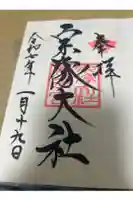 奉拝
宗像大社
令和七年
一月十九日